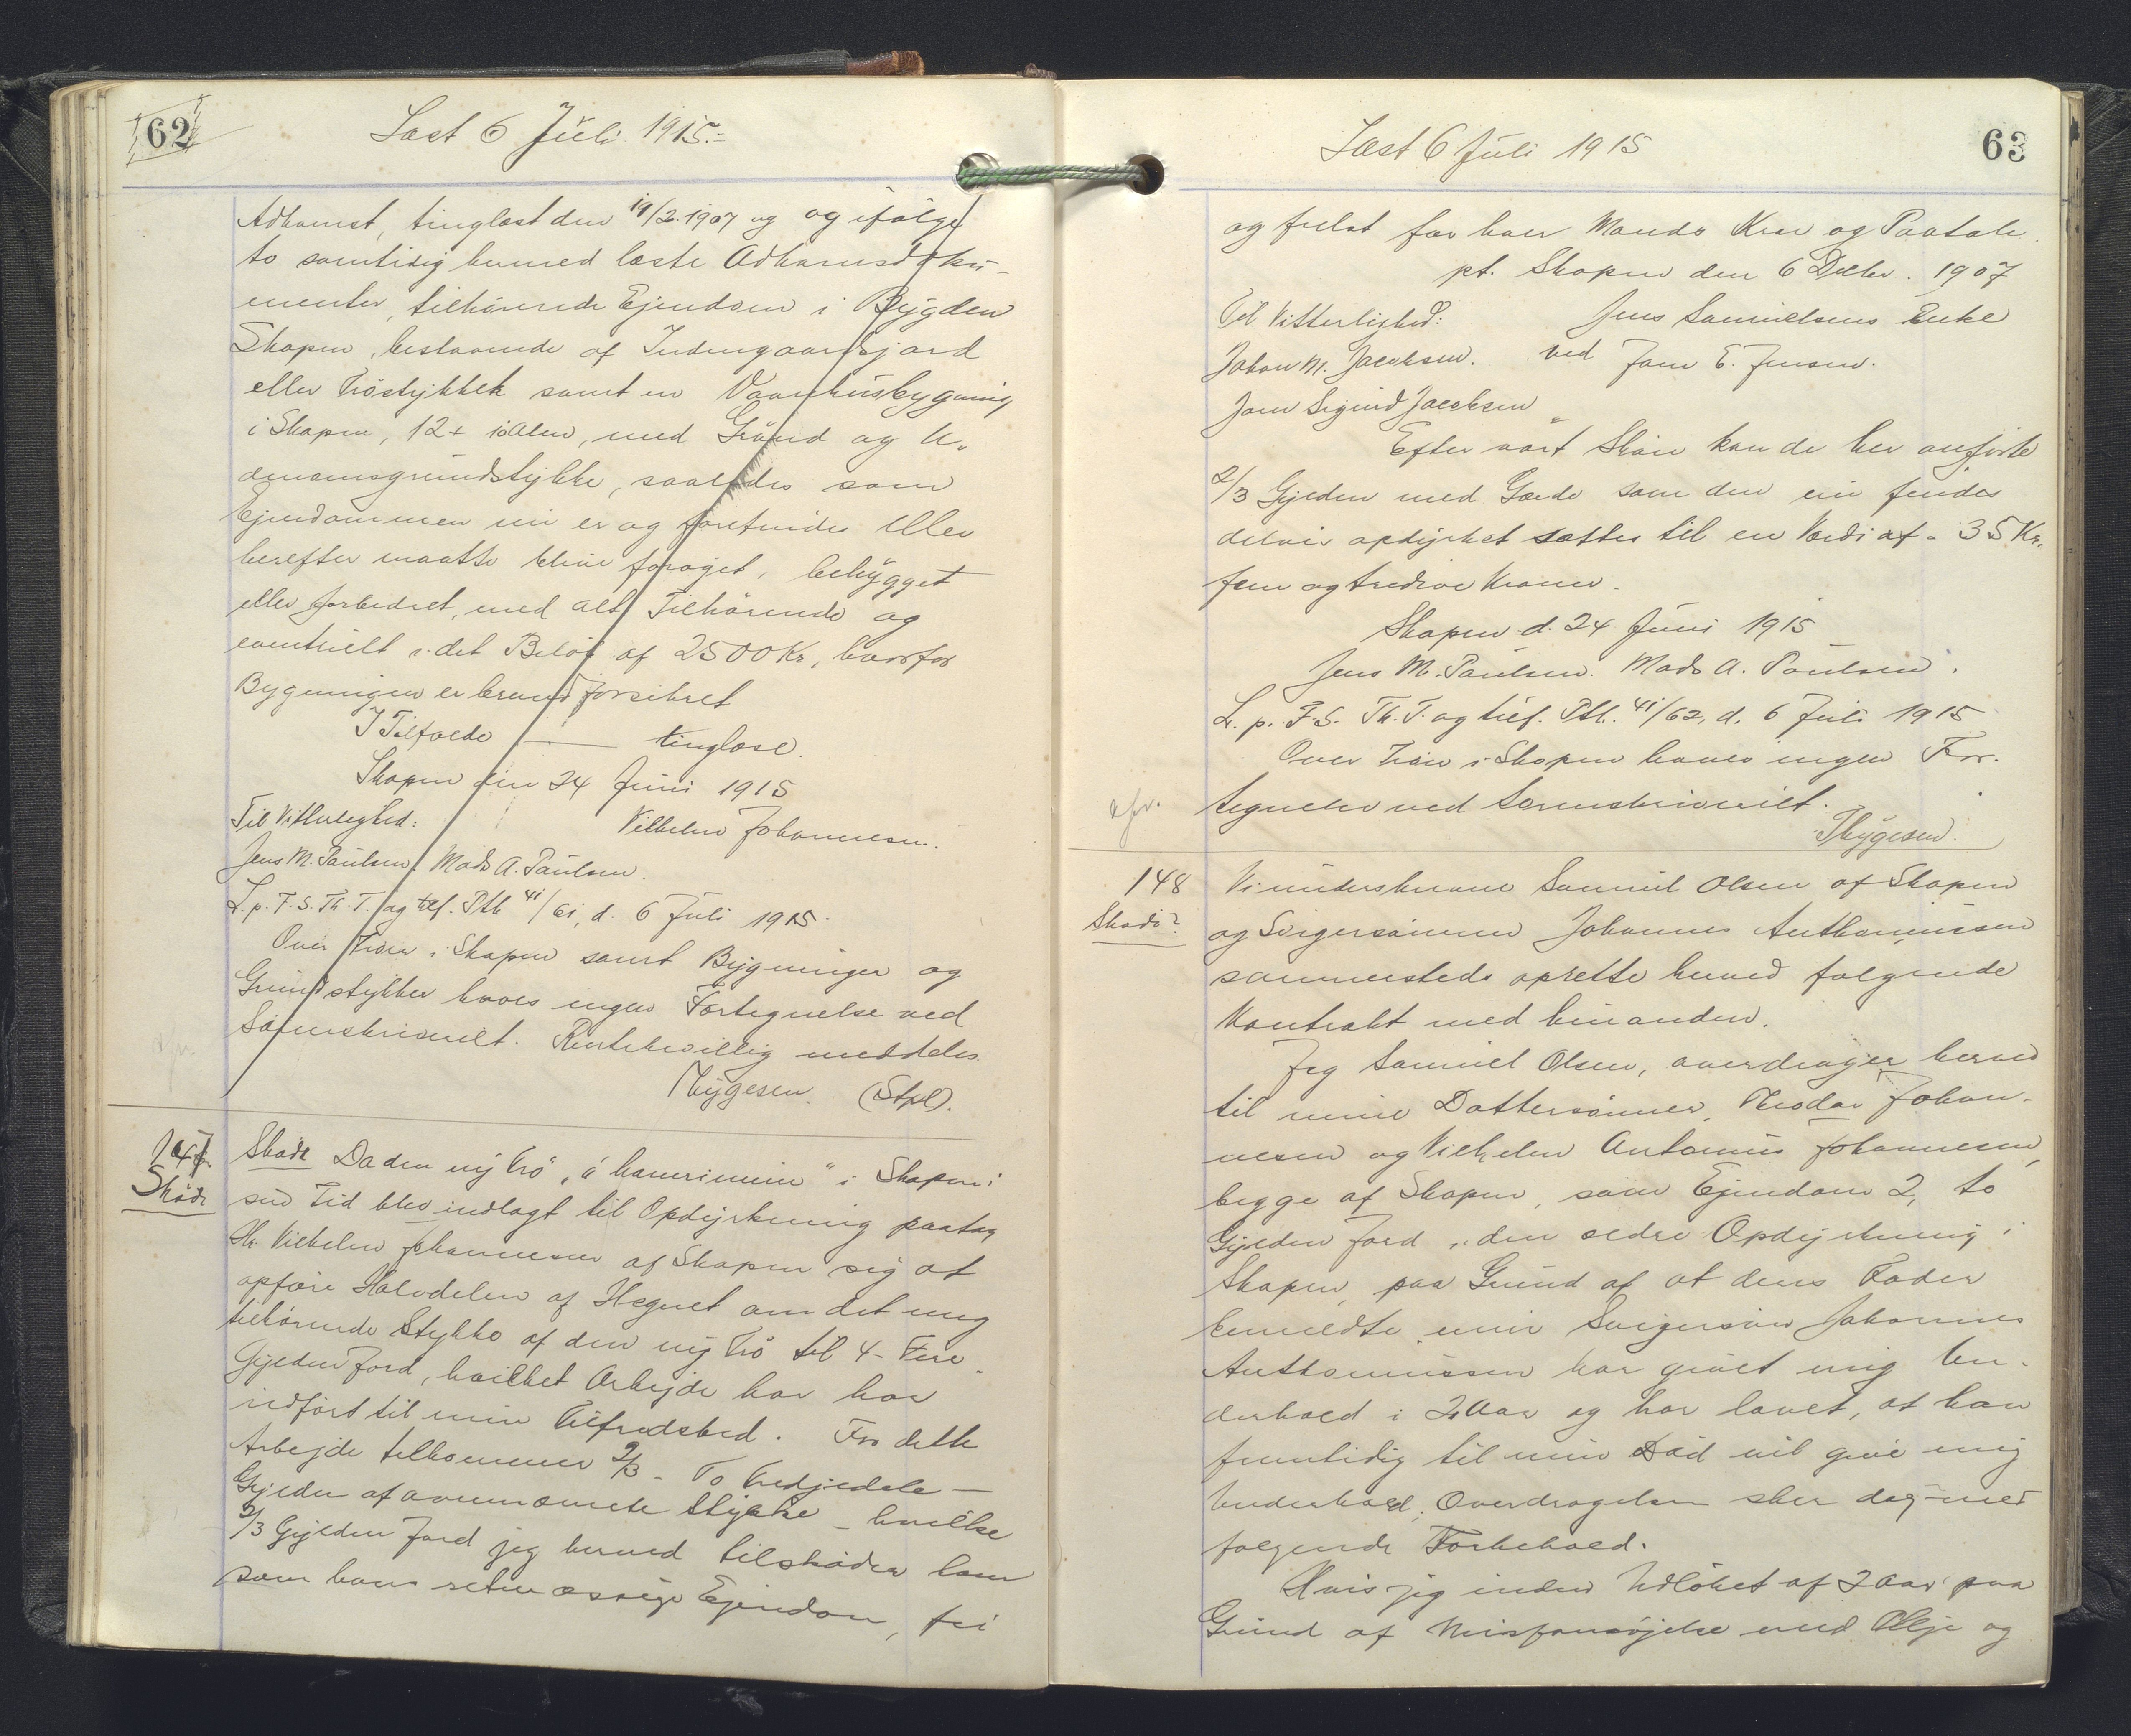 62
Læst 6 Juli 1915.
Adkomst, tinglæst den 19/2. 1907 og og ifølge
to samtidig hermed læste Adkomstdoku-
menter, tilhørende Ejendom i Bygden
Skopen, bestaaende af Indengaardsjord
eller Tröstykket samt en Vaanhusbygning
i Skopen, 12 + 10 Alen, med Grund og U-
denomsgrundstykke, saaledes som
Ejendommen nu er og forefindes eller
herefter maatte blive forøget, bebygget
eller forbedret, med alt Tilhørende og
eventuelt i det Beløb af 2500 Kr, hvorfor
Bygningen er brandforsikret
I Tilfælde — tinglæse.
Skopen den 24 Juni 1915
Til Vitterlighed: Vilhelm Johannesen.
Jens M. Paulsen. Mads A. Paulsen.
L. p. F. S. Th. T. og tilf. Ptb 41/61, d. 6 Juli 1915.
Over Tröer i Skopen samt Bygninger og
Grundstykker haves ingen Fortegnelse ved
Sorenskriveriet. Rentebevillig meddeles.
Thygesen. (Stpl).
147.
Skøde
Skøde Da den ny Trö "á hamrinum" i Skopen i
sin Tid blev indlagt til Opdyrkning paatog
Hr. Vilhelm Johannesen af Skopen sig at
opføre Halvdelen af Hegnet om det mig
tilhørende Stykke af den ny Trö til 4 - Fire -
Gylden Jord, hvilket Arbejde han har
udført til min Tilfredshed. For dette
Arbejde tilkommer 2/3 - To Tredjedele -
Gylden af ovennævnte Stykke - hvilke
2/3 Gylden Jord jeg herved tilskøder ham
som hans retmæssige Ejendom, fri
63
Læst 6 Juli 1915
og frelst for hver Mands Krav og Paatale.
pt. Skopen den 6 Decbr. 1907
Til Vitterlighed: Jens Samuelsens Enke
Johan M. Jacobsen. ved Joen E. Jensen.
Joen Sigurd Jacobsen
Efter vort Skøn kan de her anførte
2/3 Gylden med Gærde som den nu findes
delvis opdyrket sættes til en Værdi af - 35 Kr.
fem og tredive Kroner.
Skopen d. 24 Juni 1915
Jens M. Paulsen. Mads A. Paulsen.
L. p. F. S. Th. T. og tilf. Ptb. 41/62, d. 6 Juli 1915
Over Tröer i Skopen haves ingen For-
tegnelse ved Sorenskriveriet.
Thygesen.
148
Skøde?
Vi underskrevne Samuel Olsen af Skopen
og Svigersønnen Johannes Anthoniussen
sammesteds oprette herved følgende
Kontrakt med hinanden.
Jeg Samuel Olsen, overdrager herved
til mine Dattersønner, Theodor Johan-
nesen og Vilhelm Antonius Johannesen,
begge af Skopen, som Ejendom 2, to
Gylden Jord i den ældre Opdyrkning i
Skopen, paa Grund af at deres Fader
bemeldte min Svigersøn Johannes
Anthoniussen har givet mig Un-
derhold i 2 Aar og har lovet, at han
fremtidig til min Død vil give mig
Underhold. Overdragelsen sker dog med
følgende Forbehold.
Hvis jeg inden Udløbet af 2 Aar paa
Grund af Misfornøjelse med Pleje og